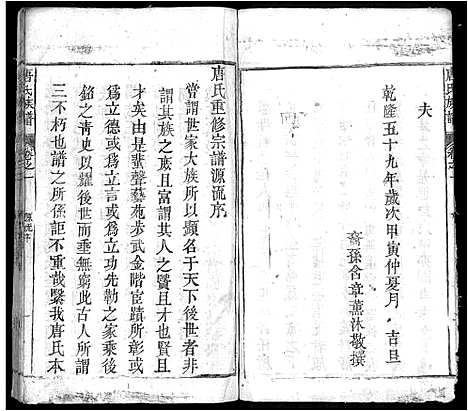 夫
乾隆五十九年歲次甲寅仲夏月 吉旦
裔孫含章薰沐敬撰
唐氏族譜
卷之一
唐氏重修宗譜源流序
嘗謂世家大族所以顯名于天下後世者非
謂其族之蕃且富謂其人之賢且才也賢且
才矣由是蜚聲藝苑步武金階宦蹟所彰或
為立德或為立言或為立功先勒之家乘後
銘之靑史以耀後世而垂無窮此古人所謂
三不朽也譜之所係詎不重哉繄我唐氏本
唐氏族譜
卷之一
源流序